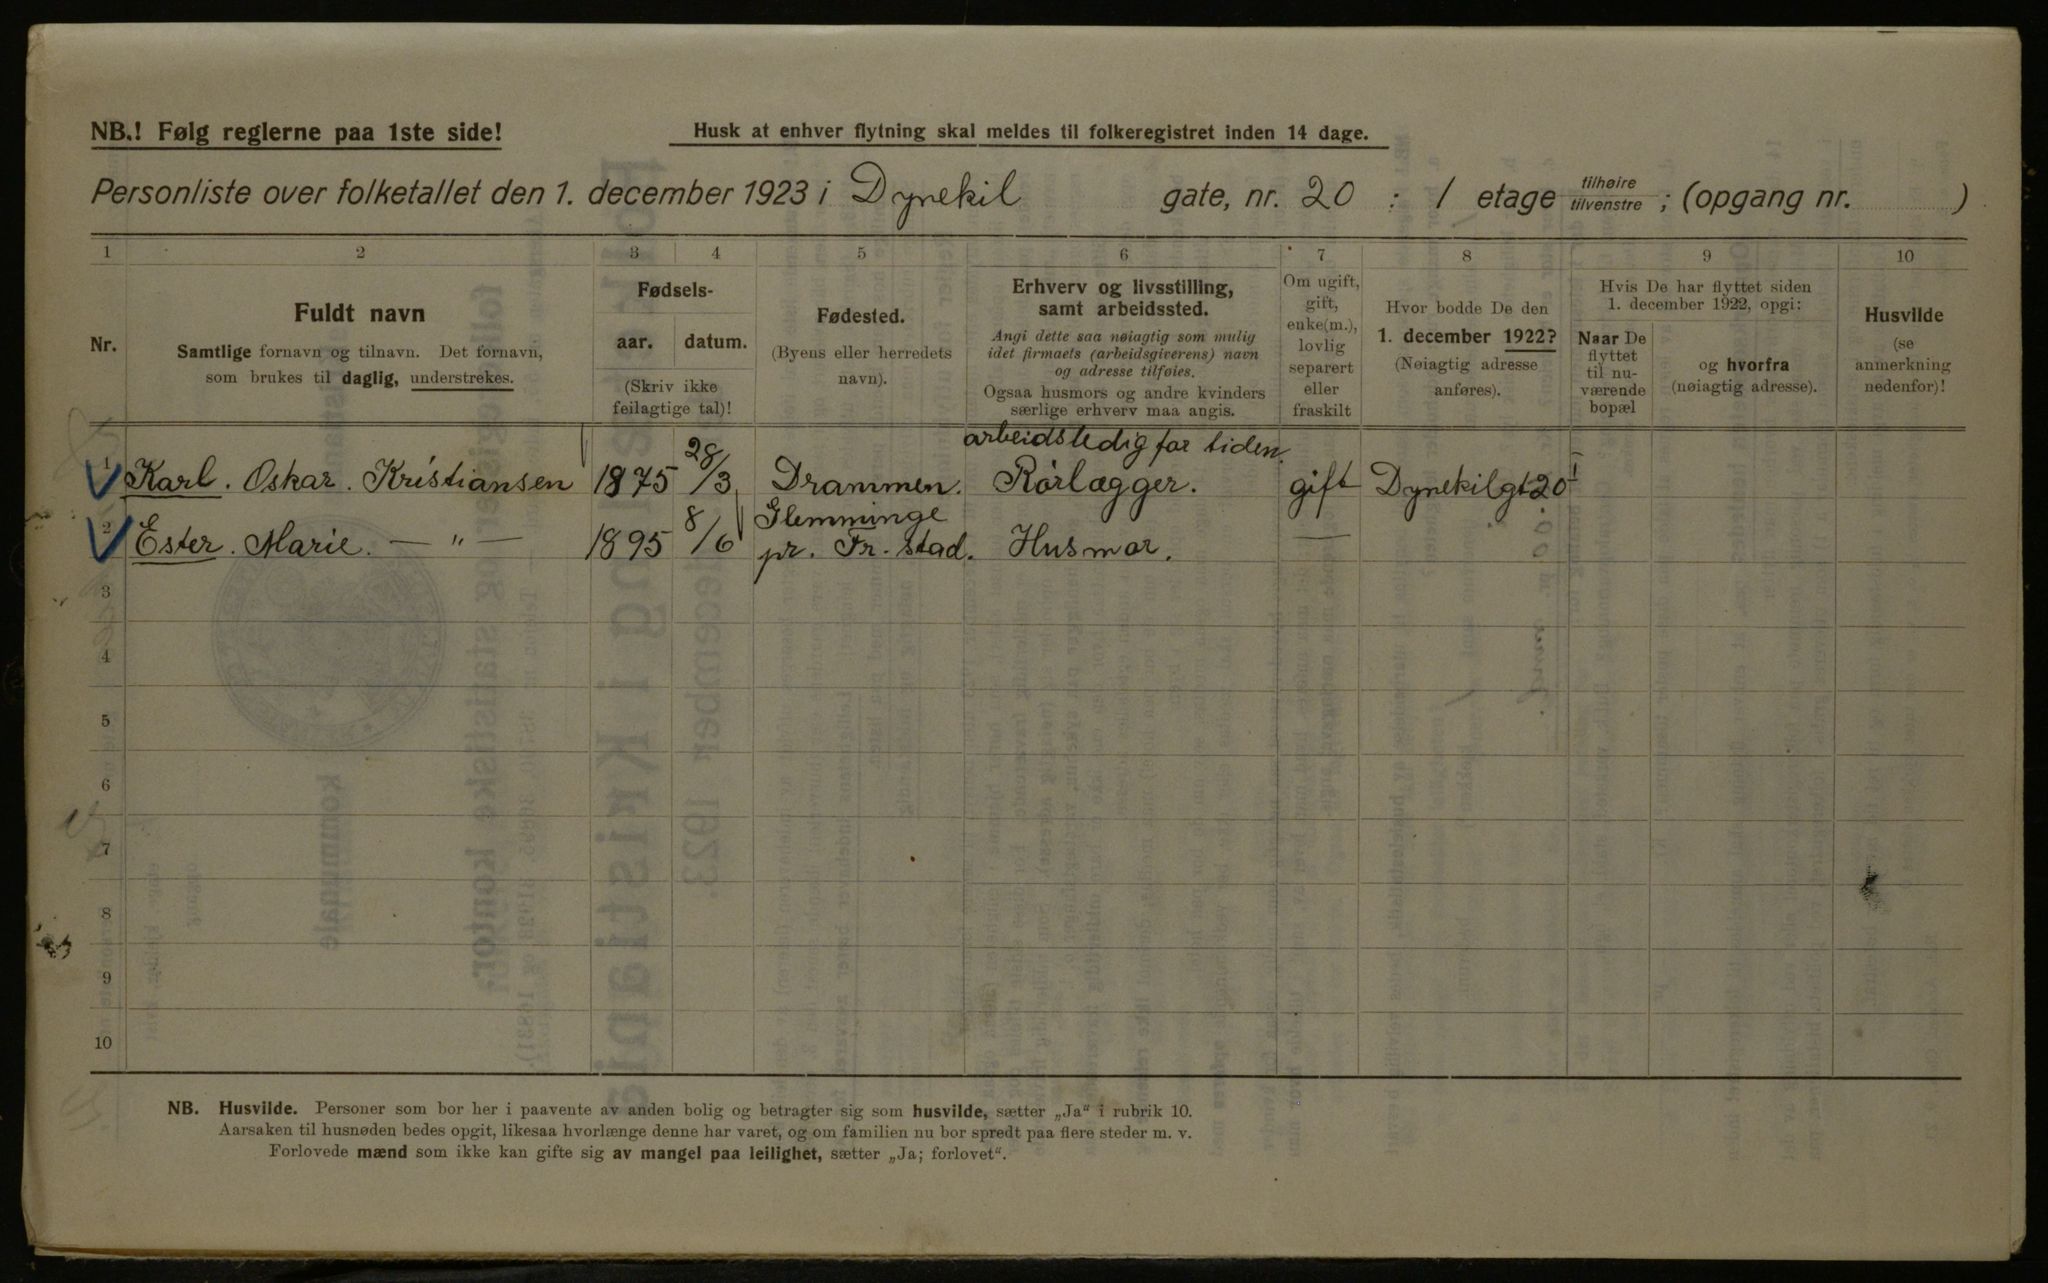 NB.! Følg reglerne paa 1ste side!
Husk at enhver flytning skal meldes til folkeregistret inden 14 dage.
Personliste over folketallet den 1. december 1923 i Dynekil gate, nr. 20 : 1 etage tilhøire tilvenstre ; (opgang nr. )
1 2 3 4 5 6 7 8 9 10
Nr.
Fuldt navn
Samtlige fornavn og tilnavn. Det fornavn,
som brukes til daglig, understrekes.
Fødsels-
aar. datum.
(Skriv ikke
feilagtige tal)!
Fødested.
(Byens eller herredets
navn).
Erhverv og livsstilling,
samt arbeidssted.
Angi dette saa nøiagtig som mulig
idet firmaets (arbeidsgiverens) navn
og adresse tilføies.
Ogsaa husmors og andre kvinders
særlige erhverv maa angis.
Om ugift,
gift,
enke(m.),
lovlig
separert
eller
fraskilt
Hvor bodde De den
1. december 1922?
(Nøiagtig adresse
anføres).
Hvis De har flyttet siden
1. december 1922, opgi:
Naar De
flyttet
til nu-
værende
bopæl
og hvorfra
(nøiagtig adresse).
Husvilde
(se
anmerkning
nedenfor)!
arbeidsledig for tiden.
1 Karl. Oskar. Kristiansen 1875 28/3 Drammen. Rörlægger. gift Dynekilgt 20 I
Glemminge
2 Ester. Marie. — „ — 1895 8/6 pr. Fr. stad. Husmor. —
3
4
5
6
7
8
9
10
NB. Husvilde. Personer som bor her i paavente av anden bolig og betragter sig som husvilde, sætter „Ja“ i rubrik 10.
Aarsaken til husnøden bedes opgit, likesaa hvorlænge denne har varet, og om familien nu bor spredt paa flere steder m. v.
Forlovede mænd som ikke kan gifte sig av mangel paa leilighet, sætter „Ja; forlovet“.